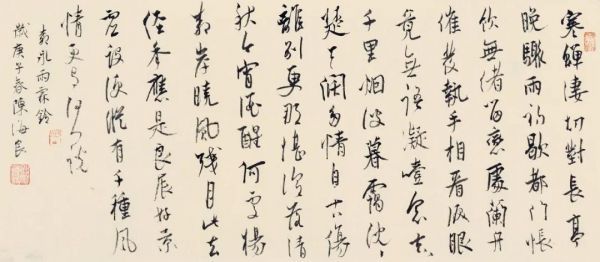 寒蟬淒切對長亭
晚驟雨初歇都门帳
饮無绪留恋處蘭舟
催發執手相看淚眼
竟無語凝噎念去〻
千里烟波暮靄沈〻
楚天阔多情自古傷
離别更那堪冷落清
秋今宵酒醒何處楊
柳岸曉風殘月此去
经年應是良辰好景
虚設便縱有千種風
情更与何人说
柳永雨霖鈴
歲庚子春陳海良